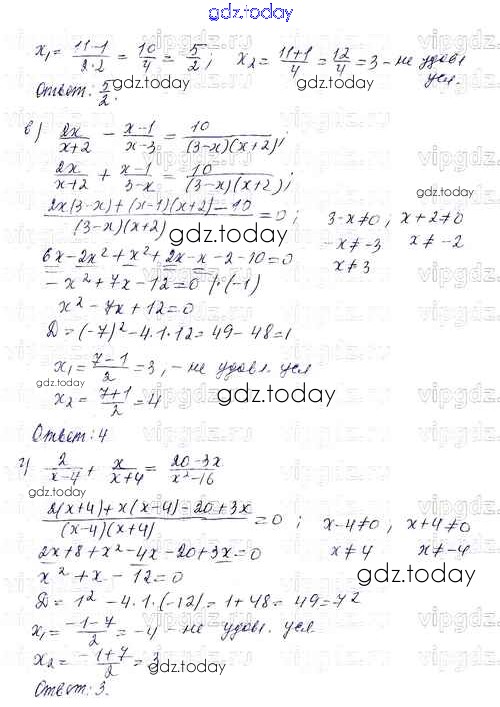 gdz.today
x₁ = (11-1)/(2·2) = 10/4 = 5/2; x₂ = (11+1)/4 = 12/4 = 3 – не удовл. усл.
Ответ: 5/2.
gdz.today
в) 2x/(x+2) - (x-1)/(x-3) = 10/((3-x)(x+2));
2x/(x+2) + (x-1)/(3-x) = 10/((3-x)(x+2));
(2x(3-x)+(x-1)(x+2)-10)/((3-x)(x+2)) = 0; 3-x≠0, x+2≠0
-x≠-3 x≠-2
x≠3
gdz.today
6x-2x²+x²+2x-x-2-10=0
-x²+7x-12=0 |·(-1)
x²-7x+12=0
D=(-7)²-4·1·12=49-48=1
x₁ = (7-1)/2 = 3, - не удовл. усл
x₂ = (7+1)/2 = 4
gdz.today
Ответ: 4
г) 2/(x-4) + x/(x+4) = (20-3x)/(x²-16)
gdz.today
(2(x+4)+x(x-4)-20+3x)/((x-4)(x+4)) = 0; x-4≠0, x+4≠0
x≠4 x≠-4
2x+8+x²-4x-20+3x=0
x²+x-12=0
gdz.today
D=1²-4·1·(-12)=1+48=49=7²
x₁ = (-1-7)/2 = -4 – не удовл. усл
x₂ = (-1+7)/2 = 3
gdz.today
Ответ: 3.
vipgdz.ru